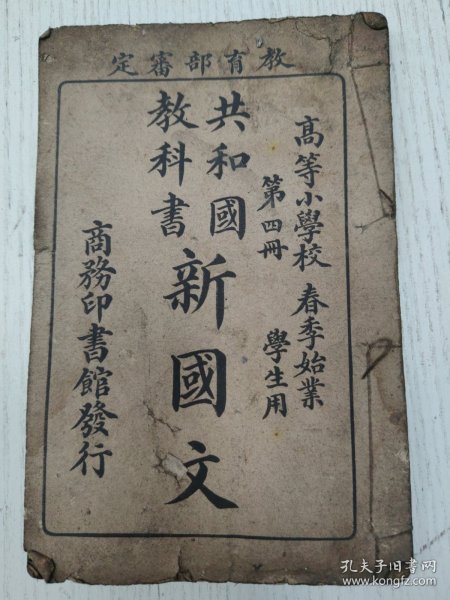 教育部審定
高等小學校 春季始業
第四冊 學生用
共和國
教科書
新國文
商務印書館發行
孔夫子旧书网
www.kongfz.com